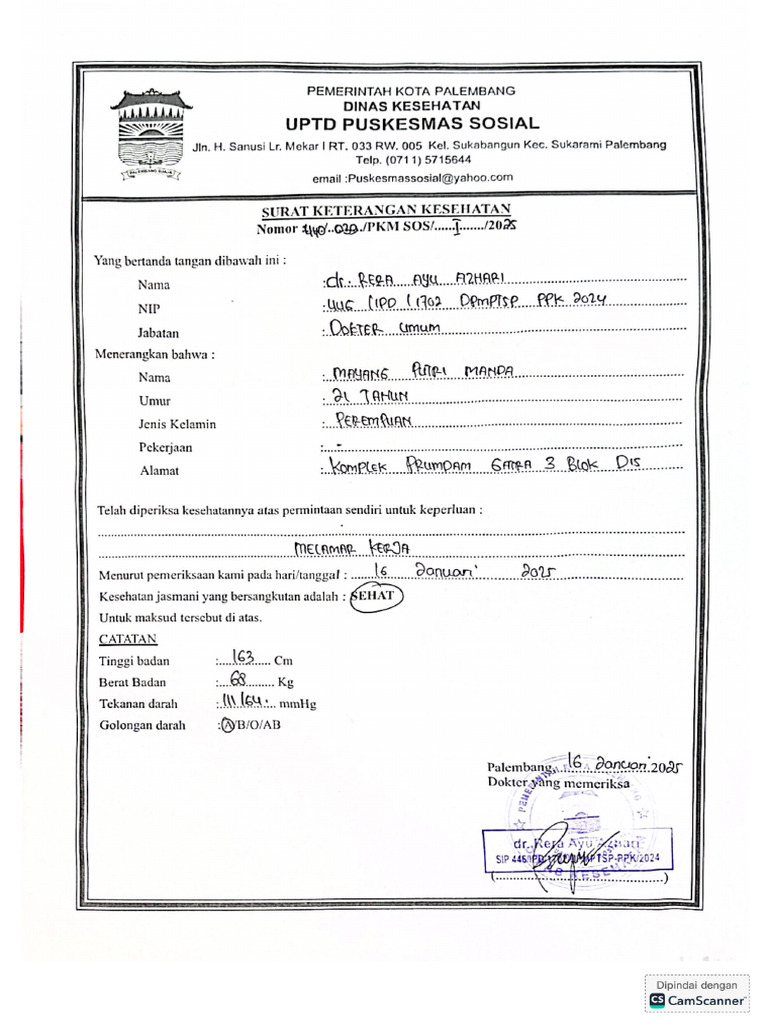 PEMERINTAH KOTA PALEMBANG
DINAS KESEHATAN
UPTD PUSKESMAS SOSIAL
Jln. H. Sanusi Lr. Mekar I RT. 033 RW. 005 Kel. Sukabangun Kec. Sukarami Palembang
Telp. (0711) 5715644
email :Puskesmassosial@yahoo.com
PALEMBANG DARUSSALAM
SURAT KETERANGAN KESEHATAN
Nomor 440/..020../PKM SOS/......I......../2025
Yang bertanda tangan dibawah ini :
Nama : dr. RERA AYU AZHARI
NIP : 446 / IPD / 1702 DPMPTSP PPK 2024
Jabatan : DOKTER UMUM
Menerangkan bahwa :
Nama : MAYANG PUTRI MANDA
Umur : 21 TAHUN
Jenis Kelamin : PEREMPUAN
Pekerjaan : -
Alamat : KOMPLEK PRUMDAM GATRA 3 BLOK D15
Telah diperiksa kesehatannya atas permintaan sendiri untuk keperluan :
MELAMAR KERJA
Menurut pemeriksaan kami pada hari/tanggal : 16 Januari 2025
Kesehatan jasmani yang bersangkutan adalah : SEHAT
Untuk maksud tersebut di atas.
CATATAN
Tinggi badan : 163 Cm
Berat Badan : 68 Kg
Tekanan darah : 111/64 mmHg
Golongan darah : A/B/O/AB
Palembang, 16 Januari 2025
Dokter yang memeriksa
dr. Rera Ayu Azhari
SIP 446/IPD/1702/DPMPTSP-PPK/2024
(..........................................)
Dipindai dengan
CS CamScanner